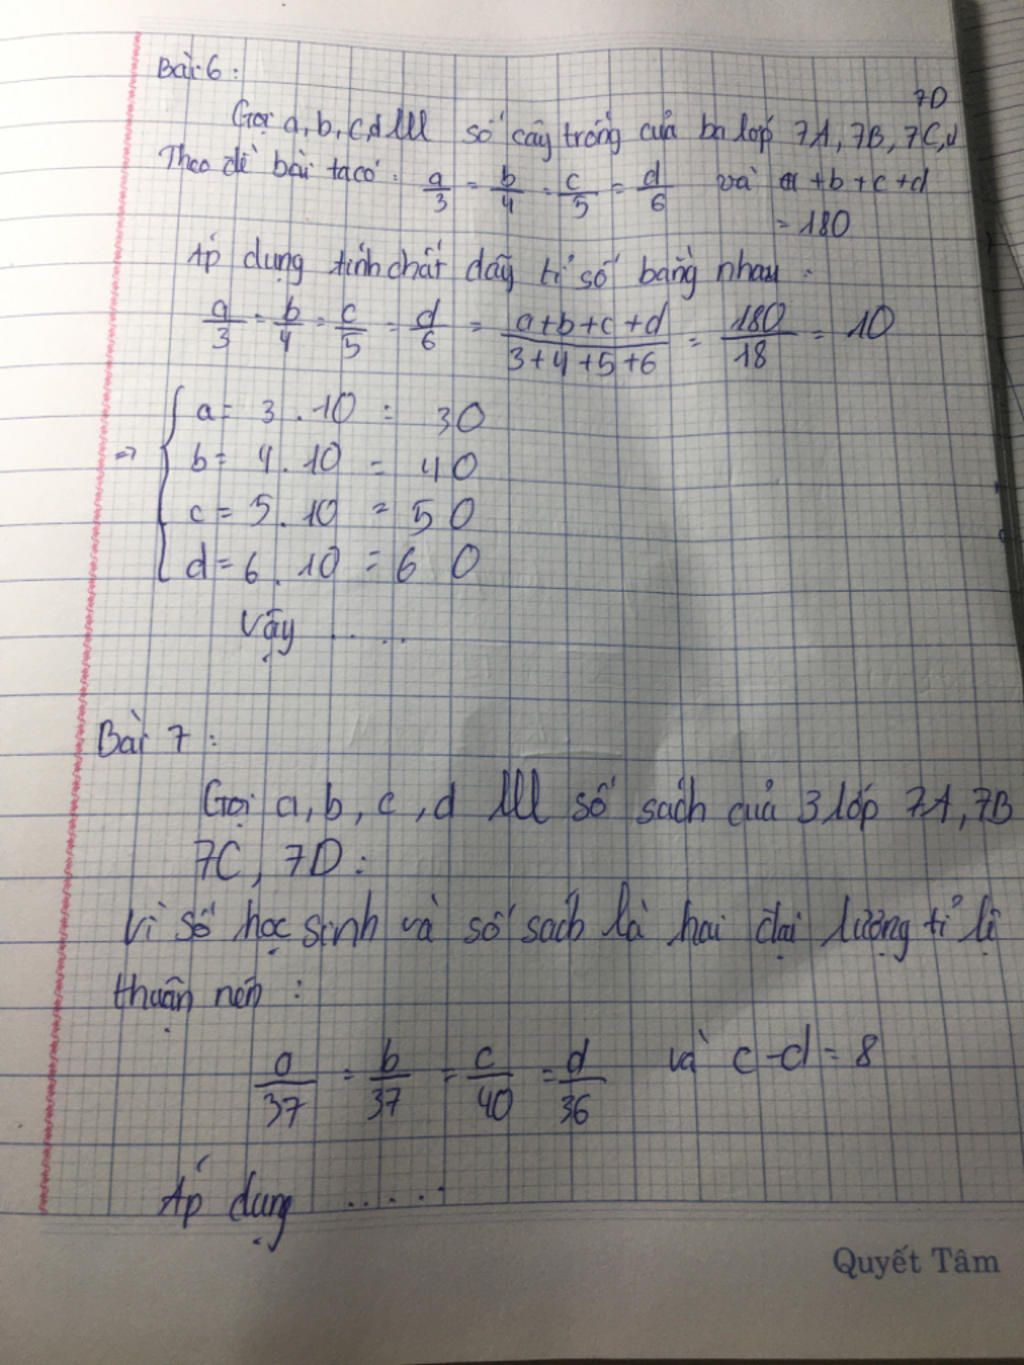 Bài 6 :
7D
Gọi a, b, c, d lll số cây trồng của ba lớp 7A, 7B, 7C,
Theo đề bài ta có : a/3 = b/4 = c/5 = d/6 và a + b + c + d
= 180
Áp dụng tính chất dãy tỉ số bằng nhau :
a/3 = b/4 = c/5 = d/6 = (a + b + c + d)/(3 + 4 + 5 + 6) = 180/18 = 10
⇒ { a = 3 . 10 = 30
b = 4 . 10 = 40
c = 5 . 10 = 50
d = 6 . 10 = 60
Vậy .....
Bài 7 :
Gọi a, b, c, d lll số sách của 3 lớp 7A, 7B
7C, 7D :
Vì số học sinh và số sách là hai đại lượng tỉ lệ
thuận nên :
a/37 = b/37 = c/40 = d/36 và c - d = 8
Áp dụng .....
Quyết Tâm